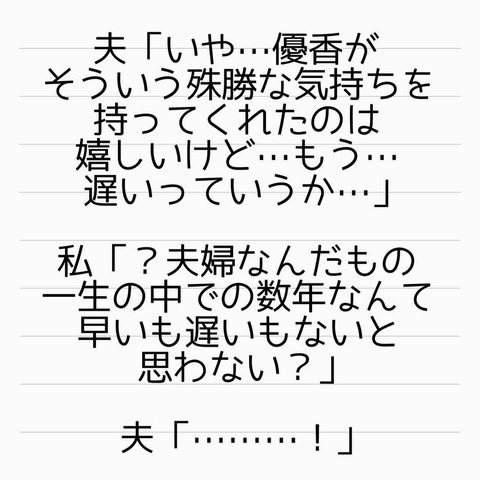 夫「いや…優香が
そういう殊勝な気持ちを
持ってくれたのは
嬉しいけど…もう…
遅いっていうか…」
私「？夫婦なんだもの
一生の中での数年なんて
早いも遅いもないと
思わない？」
夫「………！」